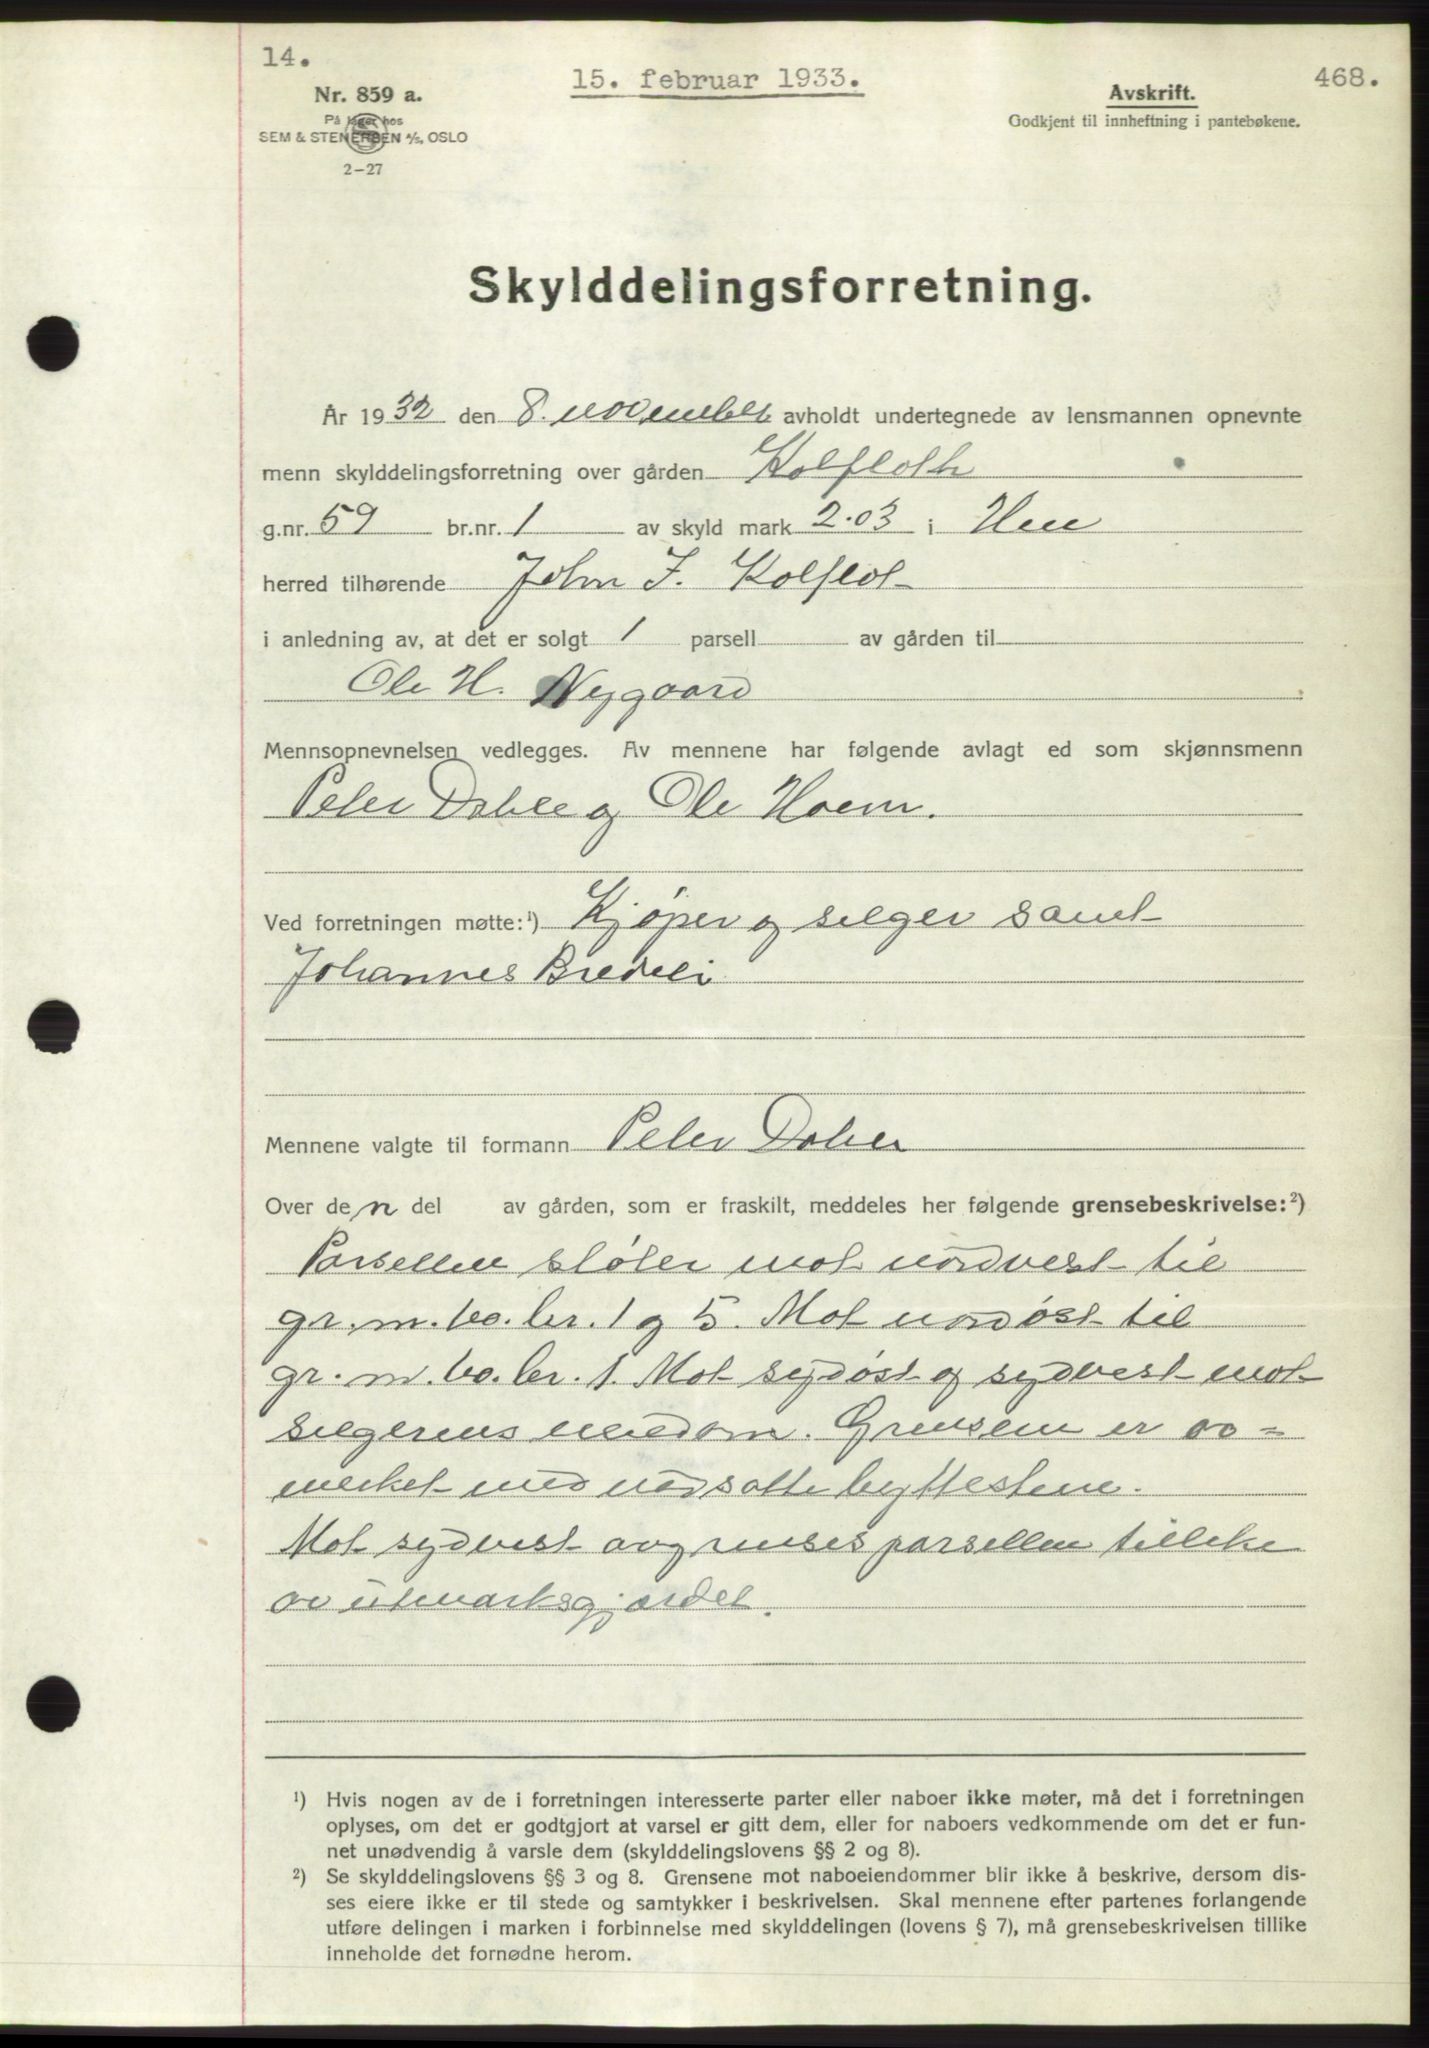 14.
15. februar 1933.
468.
Nr. 859 a.
På lager hos
SEM & STENERSEN A/S, OSLO
2-27
Avskrift.
Godkjent til innheftning i pantebøkene.
Skylddelingsforretning.
År 1932 den 8. november avholdt undertegnede av lensmannen opnevnte
menn skylddelingsforretning over gården Kolfloth
g.nr. 59 br.nr. 1 av skyld mark 2.03 i Hen
herred tilhørende John J. Kolflot
i anledning av, at det er solgt 1 parsell av gården til
Ole H. Nygaard
Mennsopnevnelsen vedlegges. Av mennene har følgende avlagt ed som skjønnsmenn
Peter Dahle og Ole Hoem.
Ved forretningen møtte:¹) Kjøper og selger samt
Johannes Bredeli
Mennene valgte til formann Peter Dahle
Over den del av gården, som er fraskilt, meddeles her følgende grensebeskrivelse:²)
Parsellen støter mot nordvest til
gr. nr. 60. br. 1 og 5. Mot nordøst til
gr. nr. 60. br. 1. Mot sydøst og sydvest mot
selgerens eiendom. Grensen er av=
merket med nedsatte byttestene.
Mot sydvest avgrenses parsellen tillike
av utmarksgjærdet.
¹) Hvis nogen av de i forretningen interesserte parter eller naboer ikke møter, må det i forretningen
oplyses, om det er godtgjort at varsel er gitt dem, eller for naboers vedkommende om det er fun-
net unødvendig å varsle dem (skylddelingslovens §§ 2 og 8).
²) Se skylddelingslovens §§ 3 og 8. Grensene mot naboeiendommer blir ikke å beskrive, dersom dis-
ses eiere ikke er til stede og samtykker i beskrivelsen. Skal mennene efter partenes forlangende
utføre delingen i marken i forbinnelse med skylddelingen (lovens § 7), må grensebeskrivelsen tillike
inneholde det fornødne herom.